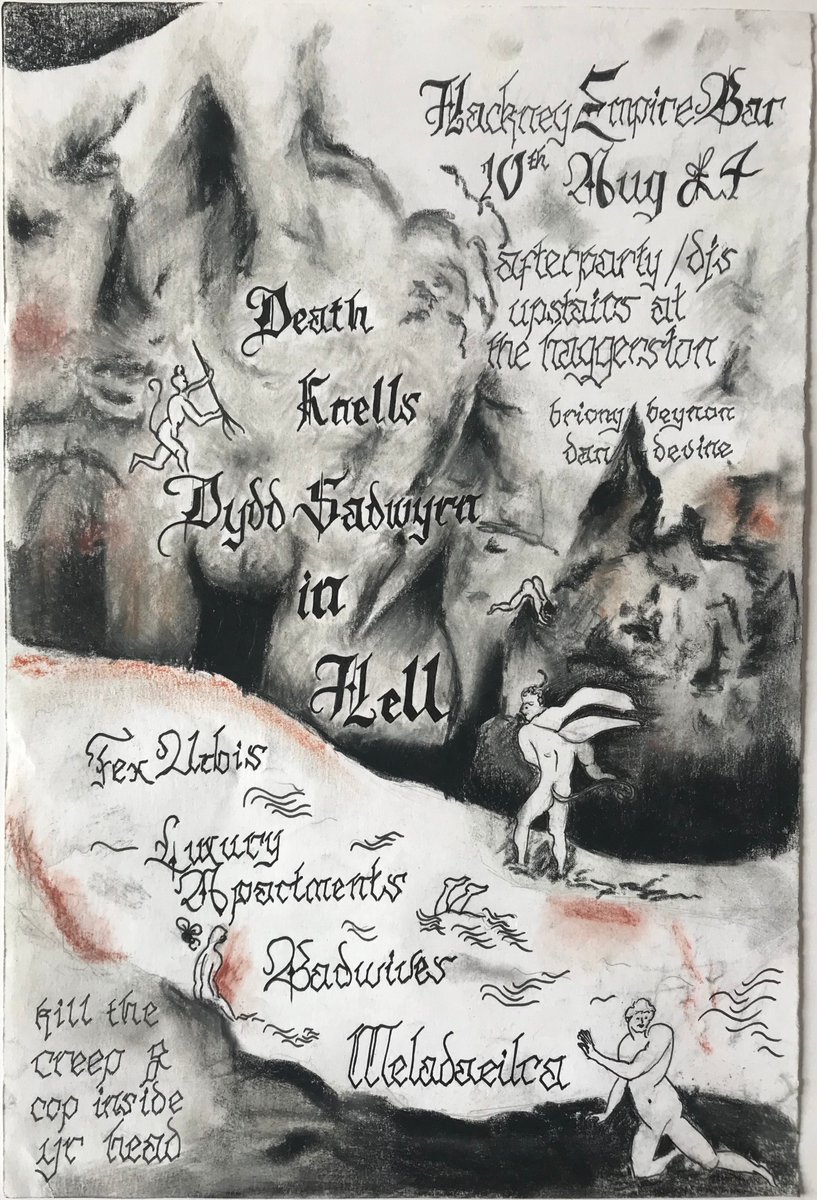 Hackney Empire Bar
10th Aug £4
afterparty / djs
upstairs at
the haggerston
briony beynon
dan devine
Death
Knells
Dydd Sadwyrn
in
Hell
Fex Urbis
Luxury
Apartments
Badwives
kill the
creep &
cop inside
yr head